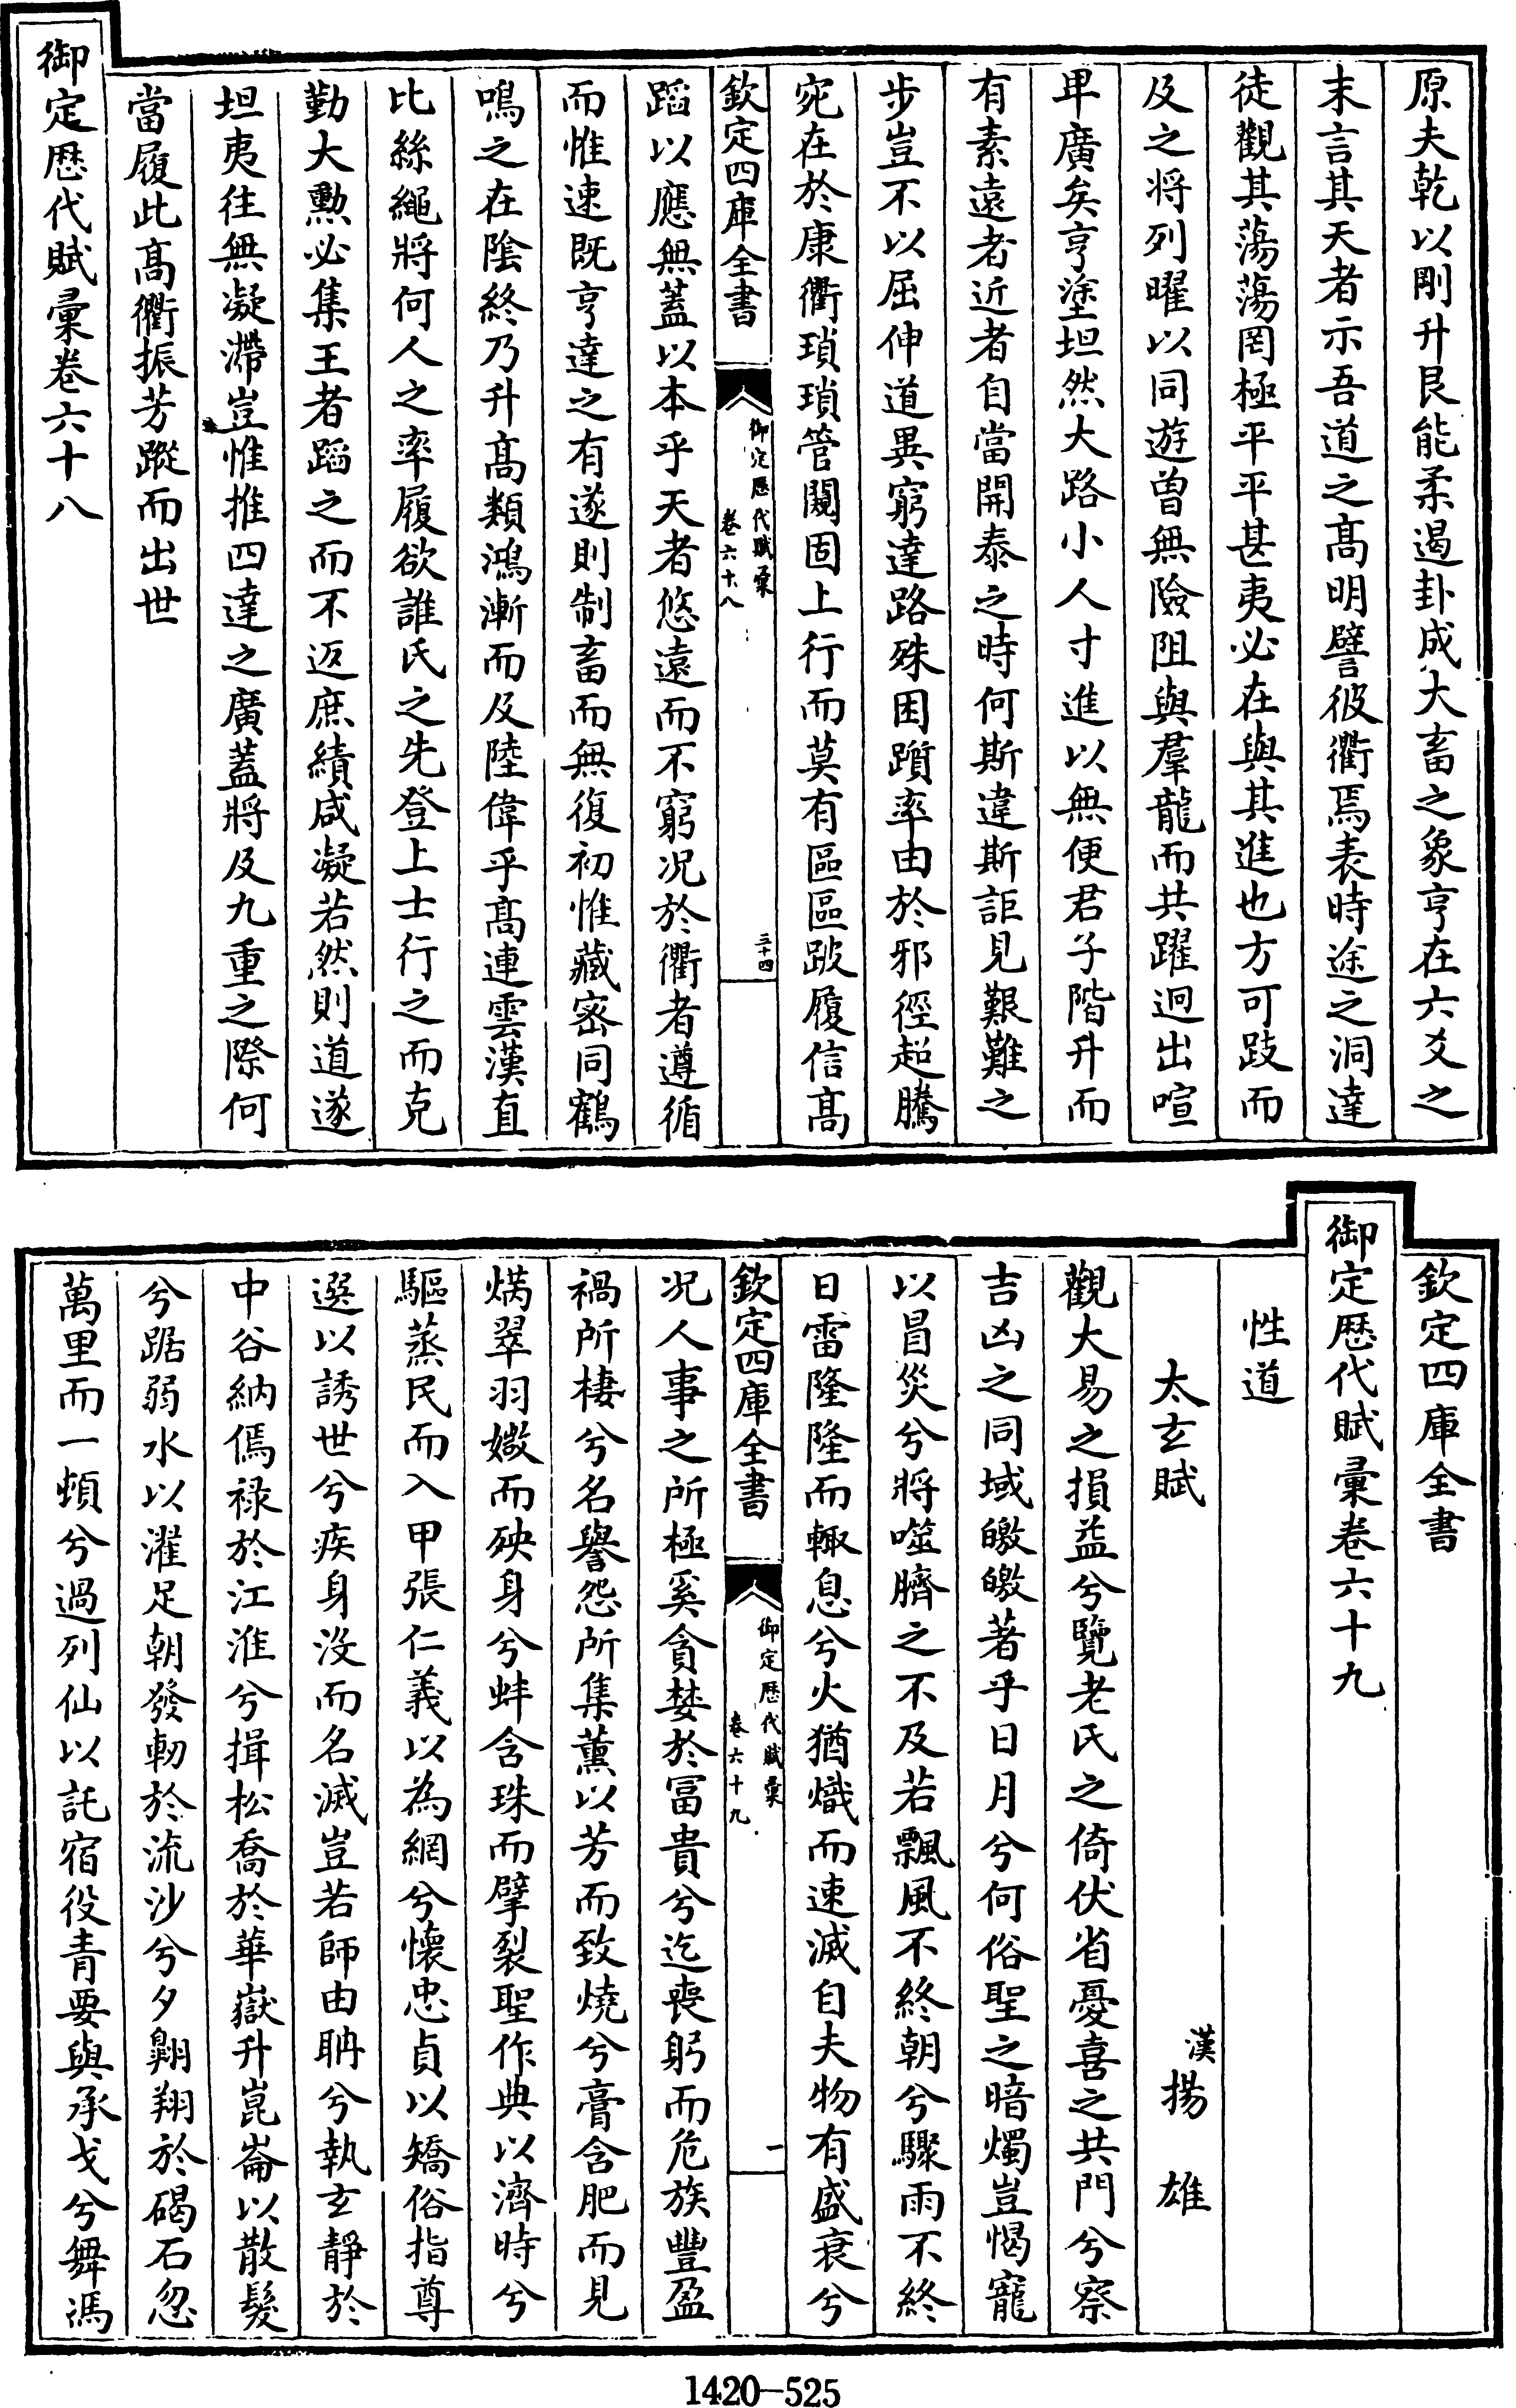 原夫乾以剛升艮能柔遏卦成大畜之象亨在六爻之
末言其天者示吾道之髙明譬彼衢焉表時途之洞達
徒觀其蕩蕩罔極平平甚夷必在與其進也方可跂而
及之将列曜以同遊曽無險阻與羣龍而共躍迥出喧
卑廣矣亨塗坦然大路小人寸進以無便君子階升而
有素遠者近者自當開泰之時何斯違斯詎見艱難之
步豈不以屈伸道異窮達路殊困躓率由於邪徑超騰
宛在於康衢瑣瑣管闚固上行而莫有區區跛履信髙
欽定四庫全書
御定歴代賦彙
卷六十八
三十四
蹈以應無蓋以本乎天者悠遠而不窮况於衢者遵循
而惟速既亨達之有遂則制畜而無復初惟藏宻同鶴
鳴之在隂終乃升髙類鴻漸而及陸偉乎髙連雲漢直
比絲繩將何人之率履欲誰氏之先登上士行之而克
勤大勲必集王者蹈之而不返庶績咸凝若然則道遂
坦夷徃無凝滯豈惟推四達之廣蓋將及九重之際何
當履此髙衢振芳蹤而出世
御定歴代賦彙卷六十八
欽定四庫全書
御定歴代賦彙卷六十九
性道
太玄賦
漢
揚雄
觀大易之損益兮覽老氏之倚伏省憂喜之共門兮察
吉凶之同域皦皦著乎日月兮何俗聖之暗燭豈愒寵
以冒災兮將噬臍之不及若飄風不終朝兮驟雨不終
日雷隆隆而輒息兮火猶熾而速滅自夫物有盛衰兮
欽定四庫全書
御定歴代賦彙
卷六十九
一
况人事之所極奚貪婪於冨貴兮迄喪躬而危族豐盈
禍所棲兮名譽怨所集薰以芳而致燒兮膏含肥而見
焫翠羽媺而殃身兮蚌含珠而擘裂聖作典以濟時兮
驅蒸民而入甲張仁義以為網兮懷忠貞以矯俗指尊
選以誘世兮疾身沒而名滅豈若師由聃兮執玄靜於
中谷納傿祿於江淮兮揖松喬於華嶽升崑崙以散髮
兮踞弱水以濯足朝發軔於流沙兮夕翺翔於碣石忽
萬里而一頓兮過列仙以託宿役青要與承戈兮舞馮
1420-525